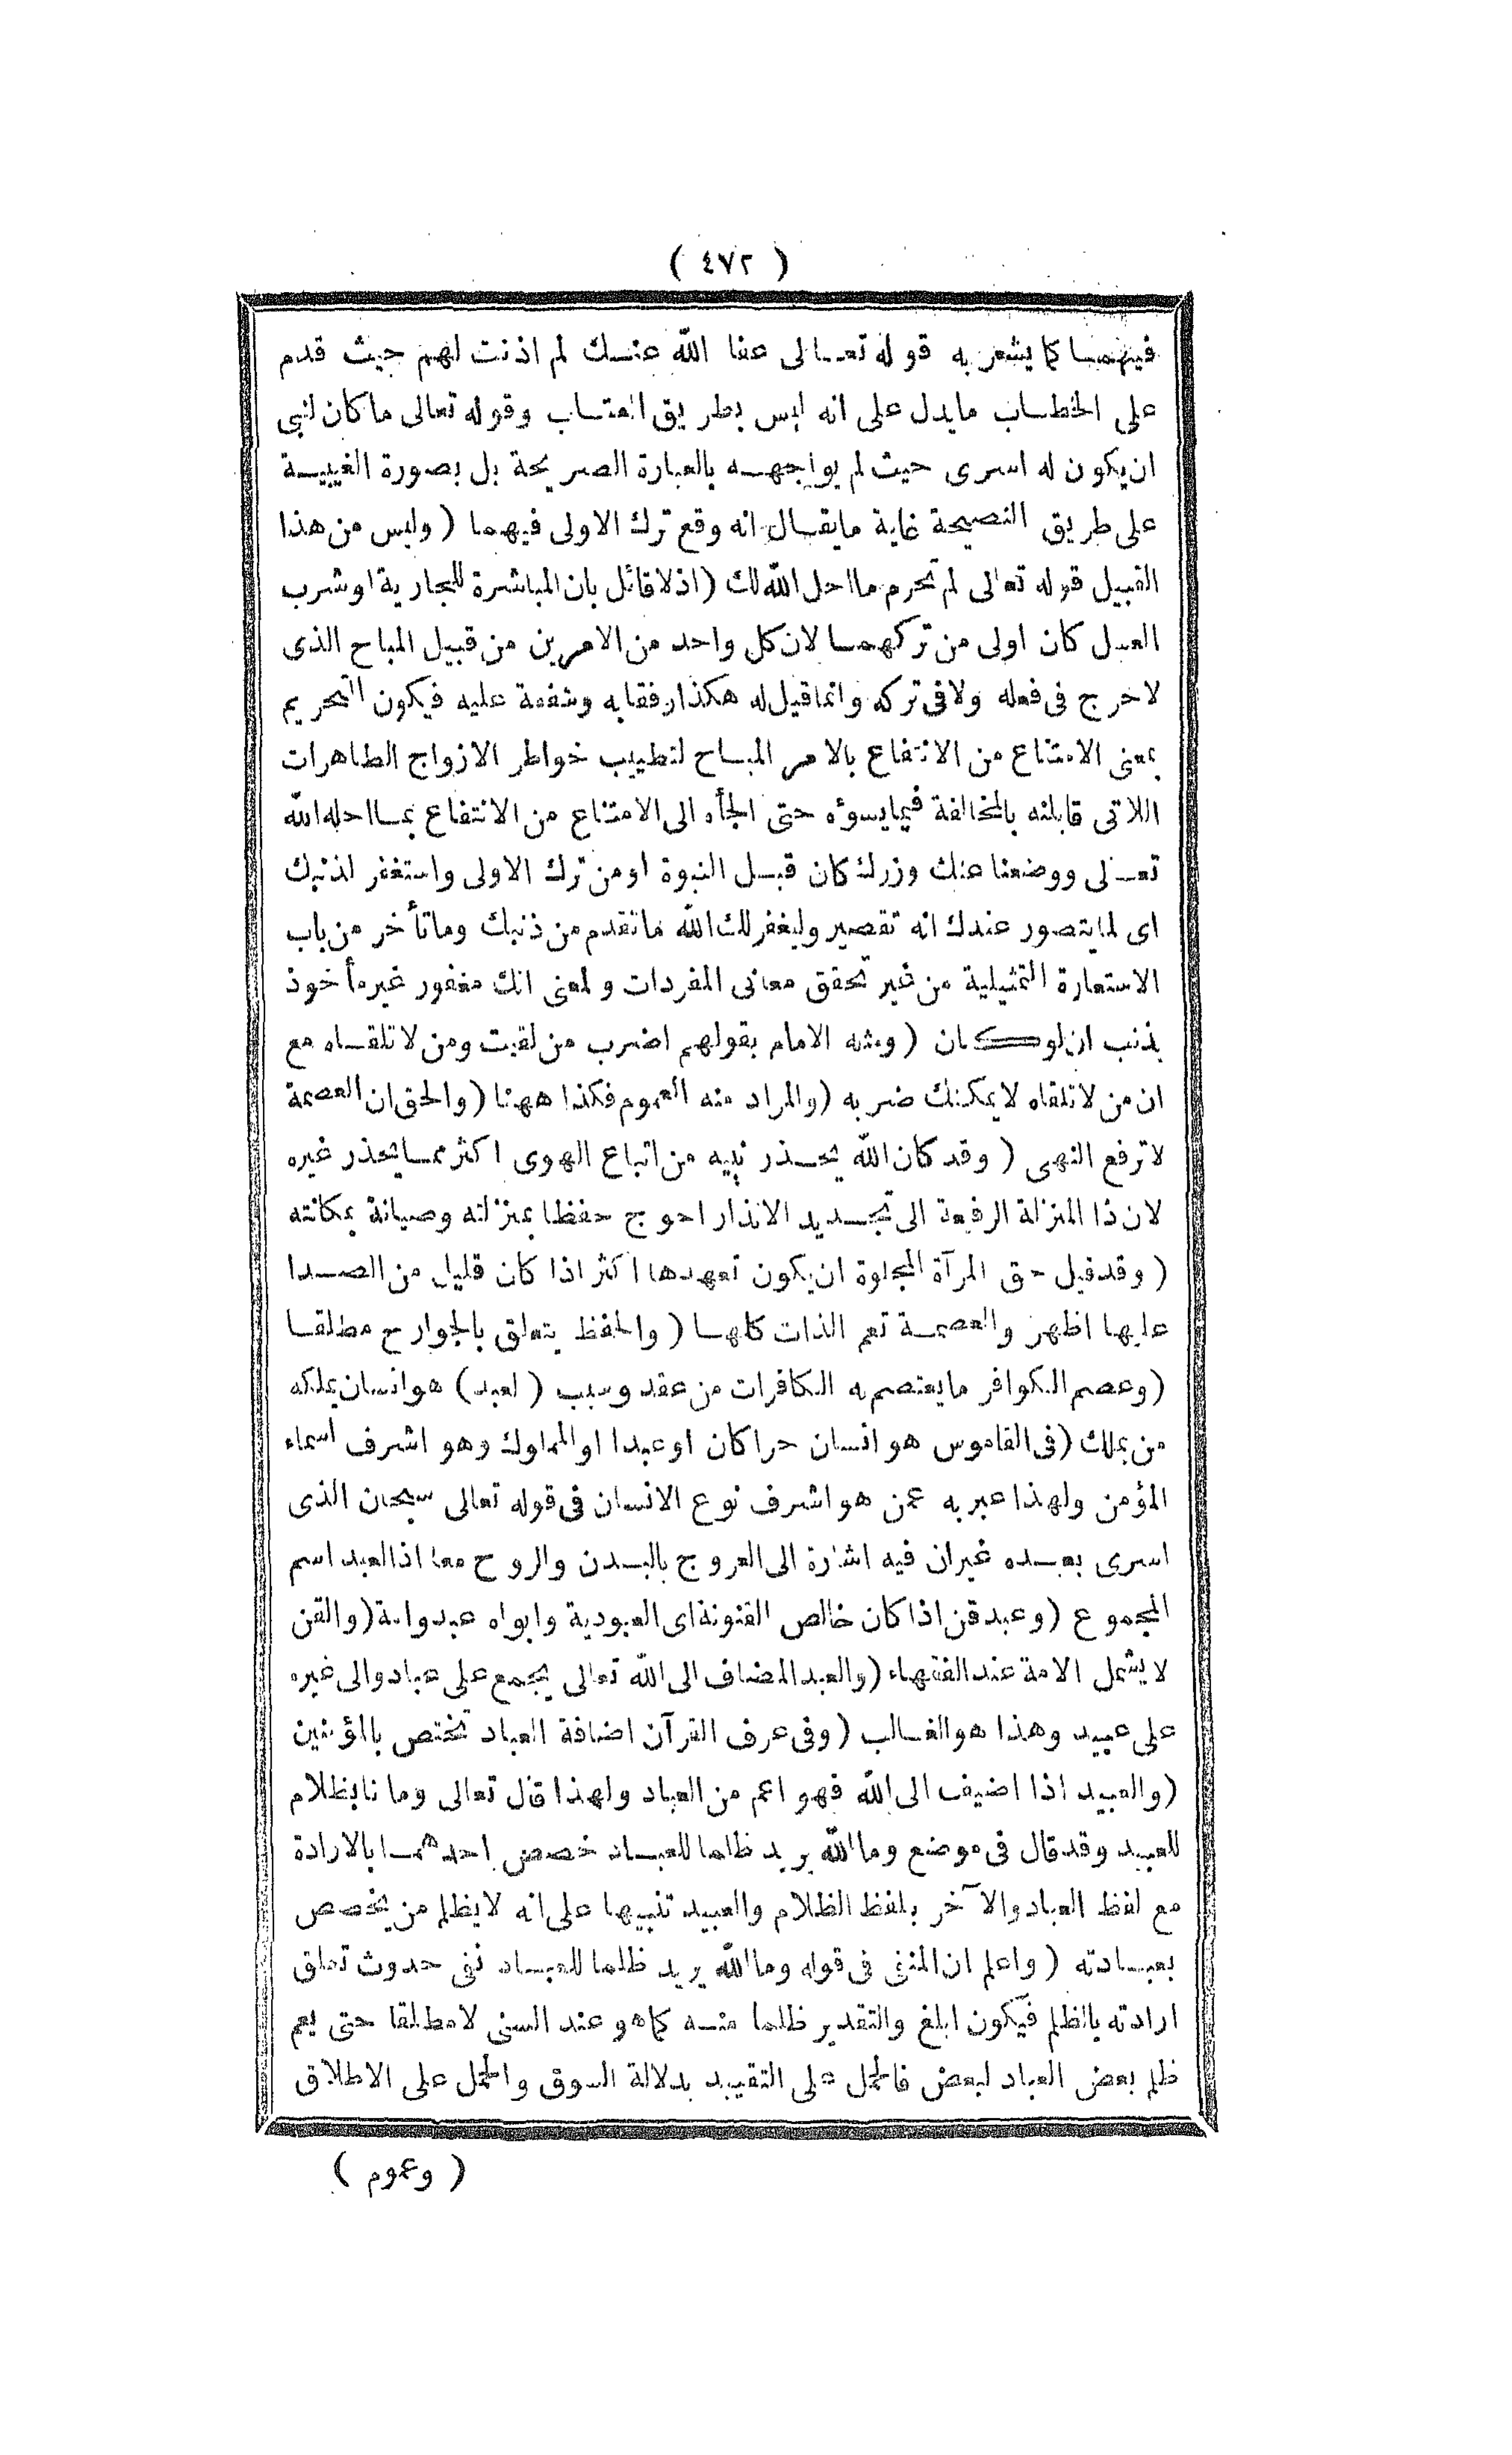 ( ٤٧٢ )
فيهما كما يشعر به قوله تعالى عفا الله عنك لم اذنت لهم حيث قدم
على الخطاب ما يدل على انه ليس بطريق العتاب وقوله تعالى ما كان لنبى
ان يكون له اسرى حيث لم يواجهه بالعبارة الصريحة بل بصورة الغيبية
على طريق النصيحة غاية ما يقال انه وقع ترك الاولى فيهما ( وليس من هذا
القبيل قوله تعالى لم تحرم ما احل الله لك ( اذ لا قائل بان المباشرة للجارية او شرب
العسل كان اولى من تركهما لان كل واحد من الامرين من قبيل المباح الذى
لا حرج فى فعله ولا فى تركه وانما قيل له هكذا رفقا به وشفقة عليه فيكون التحريم
بمعنى الامتناع من الانتفاع بالامر المباح لتطييب خواطر الازواج الطاهرات
اللاتى قابلنه بالمخالفة فيما يسوؤه حتى الجأه الى الامتناع من الانتفاع بما احله الله
تعالى ووضعنا عنك وزرك كان قبل النبوة او من ترك الاولى واستغفر لذنبك
اى لما يتصور عندك انه تقصير وليغفر لك الله ما تقدم من ذنبك وما تأخر من باب
الاستعارة التمثيلية من غير تحقق معانى المفردات و لمعنى انك مغفور غير مأخوذ
بذنب ان لو كان ( ومثله الامام بقولهم اضرب من لقيت ومن لا تلقاه مع
ان من لا تلقاه لا يمكنك ضربه ( والمراد منه العموم فكذا ههنا ( والحق ان العصمة
لا ترفع النهى ( وقد كان الله يحذر نبيه من اتباع الهوى اكثر مما يحذر غيره
لان ذا المنزلة الرفيعة الى تجديد الانذار احوج حفظا بمنزلته وصيانة بمكانته
( وقد قيل حق المرآة المجلوة ان يكون تعهدها اكثر اذا كان قليل من الصدا
عليها اظهر والعصمة تعم الذات كلها ( والحفظ يتعلق بالجوارح مطلقا
( وعصم الكوافر ما يعتصم به الكافرات من عقد وسبب ( لعبد ) هو انسان يملكه
من يملك ( فى القاموس هو انسان حرا كان او عبدا او المملوك وهو اشرف اسماء
المؤمن ولهذا عبر به عمن هو اشرف نوع الانسان فى قوله تعالى سبحان الذى
اسرى بعبده غير ان فيه اشارة الى العروج بالبدن والروح معا اذ العبد اسم
المجموع ( وعبد قن اذا كان خالص القنونة اى العبودية وابواه عبد وامة ( والقن
لا يشمل الامة عند الفقهاء ( والعبد المضاف الى الله تعالى يجمع على عباد والى غيره
على عبيد وهذا هو الغالب ( وفى عرف القرآن اضافة العباد تختص بالمؤمنين
( والعبيد اذا اضيف الى الله فهو اعم من العباد ولهذا قال تعالى وما نا بظلام
للعبيد وقد قال فى موضع وما الله يريد ظلما للعباد خصص احدهما بالارادة
مع لفظ العباد والآخر بلفظ الظلام والعبيد تنبيها على انه لا يظلم من يخصص
بعبادته ( واعلم ان المنفى فى قوله وما الله يريد ظلما للعباد نفى حدوث تعلق
ارادته بالظلم فيكون ابلغ والتقدير ظلما منه كما هو عند السنى لا مطلقا حتى يعم
ظلم بعض العباد لبعض فالحمل على التقييد بدلالة السوق والحمل على الاطلاق
( وعموم )